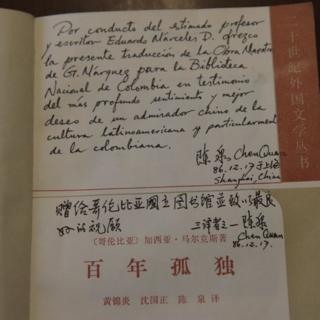 Por conducto del estimado profesor
y escritor Eduardo Márceles D. ofrezco
la presente traducción de la Obra Maestra
de G. Márquez para la Biblioteca
Nacional de Colombia en testimonio
del más profundo sentimiento y mejor
deseo de un admirador chino de la
cultura latinoamericana y particularmente
de la colombiana.
陈泉, Chen Quan
86.12.17 于上海
Shanghai, China
二十世纪外国文学丛书
赠给哥伦比亚国立图书馆并致以最良
好的祝愿
三译者之一 陈泉
Chen Quan
86.12.17.
〔哥伦比亚〕加西亚·马尔克斯著
百年孤独
黄锦炎 沈国正 陈泉 译